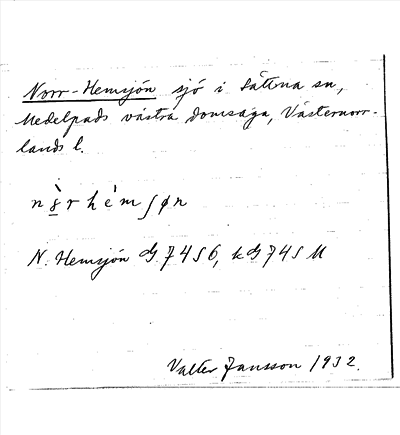 Norr-Hemsjön sjö i Sättna sn,
Medelpads västra domsaga, Västernorr-
lands l.
hémʃøn
N. Hemsjön G. 7456, kG 745 M
Valter Jansson 1932.